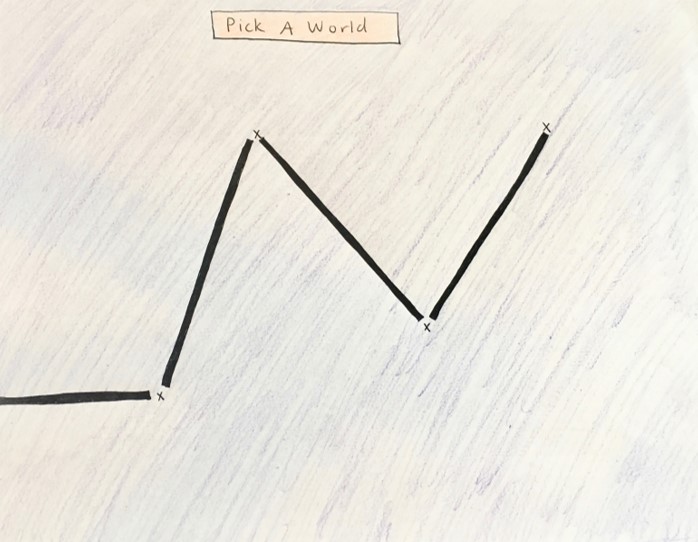 Pick A World
x
x
x
x